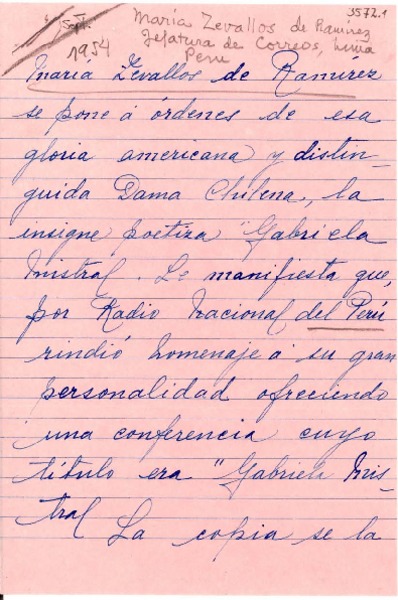 3572.1
María Zevallos de Ramírez
Jefatura de Correos, Lima
Perú
Sept.
1954
María Zevallos de Ramírez
se pone á órdenes de esa
gloria americana y distin-
guida Dama Chilena, la
insigne poetiza "Gabriela
Mistral. Le manifiesta que,
por Radio Nacional del Perú
rindió homenaje á su gran
personalidad ofreciendo
una conferencia cuyo
título era "Gabriela Mis-
tral
La copia se la